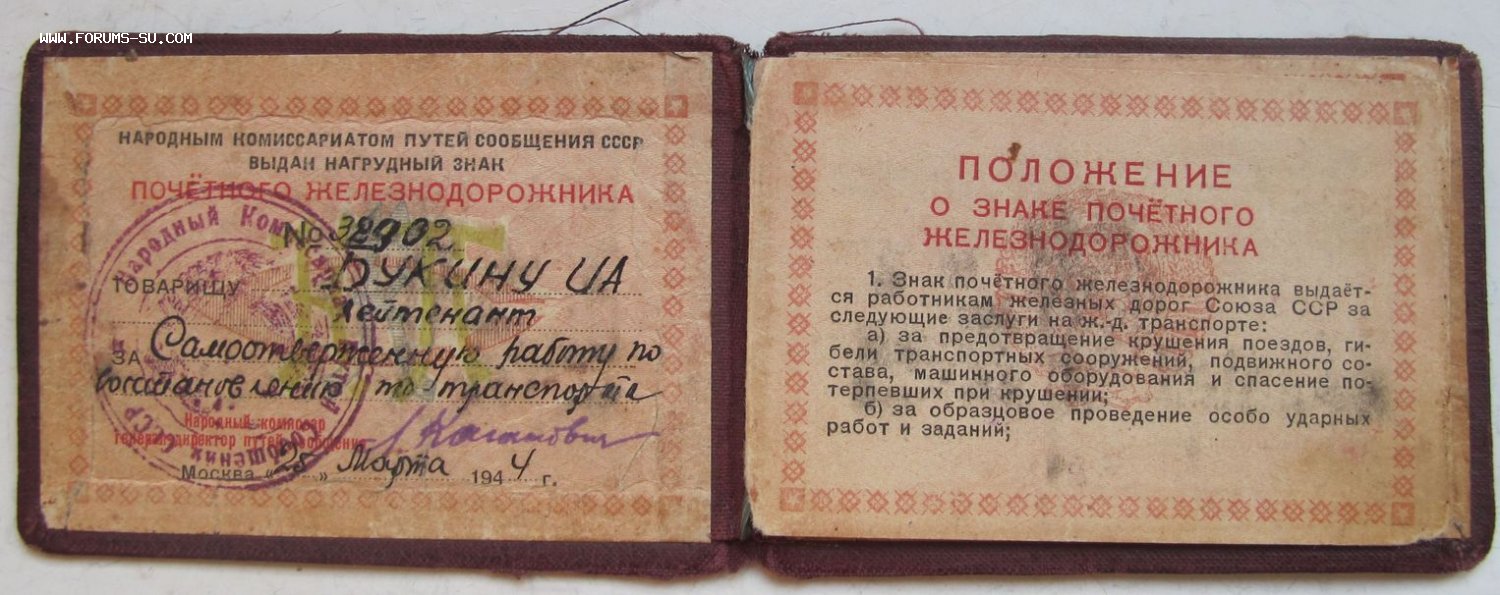 WWW.FORUMS-SU.COM
НАРОДНЫМ КОМИССАРИАТОМ ПУТЕЙ СООБЩЕНИЯ СССР
ВЫДАН НАГРУДНЫЙ ЗНАК
ПОЧЁТНОГО ЖЕЛЕЗНОДОРОЖНИКА
№
ТОВАРИЩУ БУКИНУ ИА
Лейтенант
ЗА Самоотверженную работу по
восстановлению транспорта
Народный комиссар
директор путей сообщения
Л Каганович
Москва " " Марта 1944 г.
Народный Комиссариат Путей Сообщения СССР
ПОЛОЖЕНИЕ
О ЗНАКЕ ПОЧЁТНОГО
ЖЕЛЕЗНОДОРОЖНИКА
1. Знак почётного железнодорожника выдаёт-
ся работникам железных дорог Союза ССР за
следующие заслуги на ж.-д. транспорте:
а) за предотвращение крушения поездов, ги-
бели транспортных сооружений, подвижного со-
става, машинного оборудования и спасение по-
терпевших при крушении;
б) за образцовое проведение особо ударных
работ и заданий;